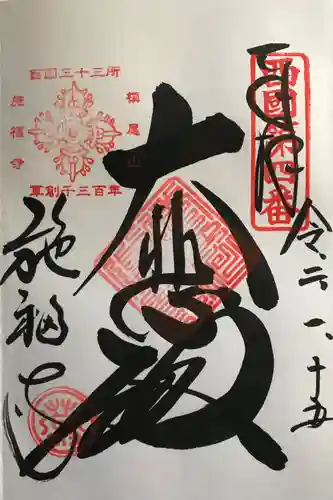 奉拝
西國第四番
令二一、十五
大悲殿
西国三十三所
槇尾山
施福寺
草創千三百年
施福寺